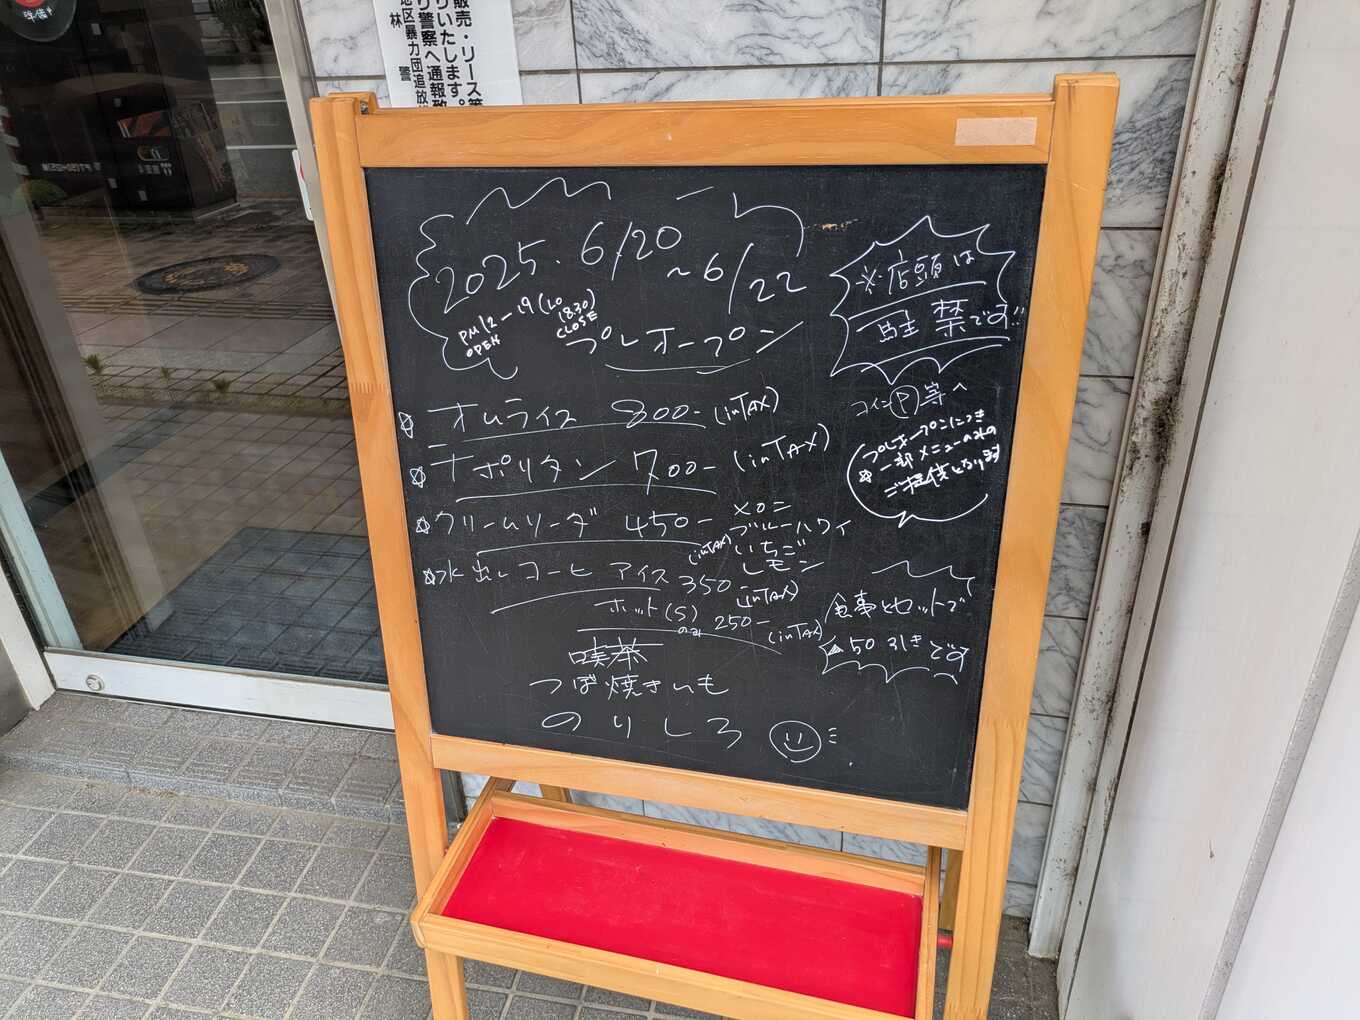 販売・リース等
りいたします。
り警察へ通報致
地区暴力団追放
林 警
2025. 6/20
~6/22
PM12-19(LO 18:30)
OPEN CLOSE
プレオープン
※店頭は
駐禁です!!
コインⓅ等へ
プレオープンにつき
☆一部メニューのみの
ご提供となります
☆オムライス 800- (inTAX)
☆ナポリタン 700- (inTAX)
☆クリームソーダ 450- (inTAX)
メロン
ブルーハワイ
いちご
レモン
☆水出しコーヒ アイス 350- (inTAX)
ホット(S)のみ 250- (inTAX)
食事とセットで
▲50引きです
喫茶
つぼ焼きいも
のりしろ